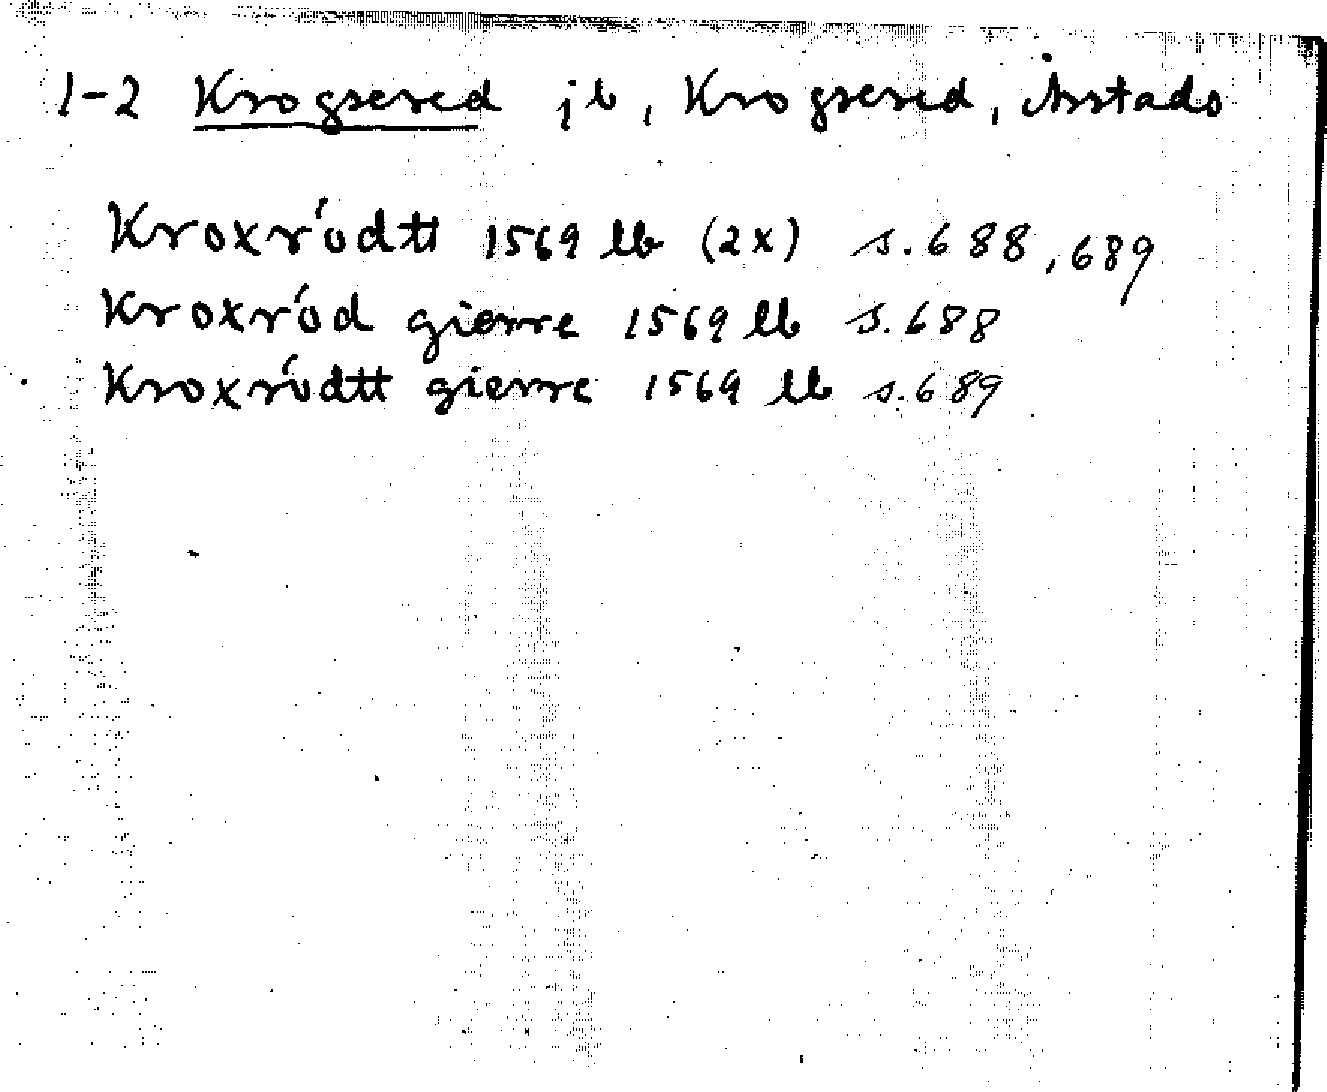 1-2 Krogsered jb, Krogsered, Årstads
Kroxródtt 1569 lb (2x) s. 688, 689
Kroxród gierre 1569 lb s. 688
Kroxródtt gierre 1569 lb s. 689